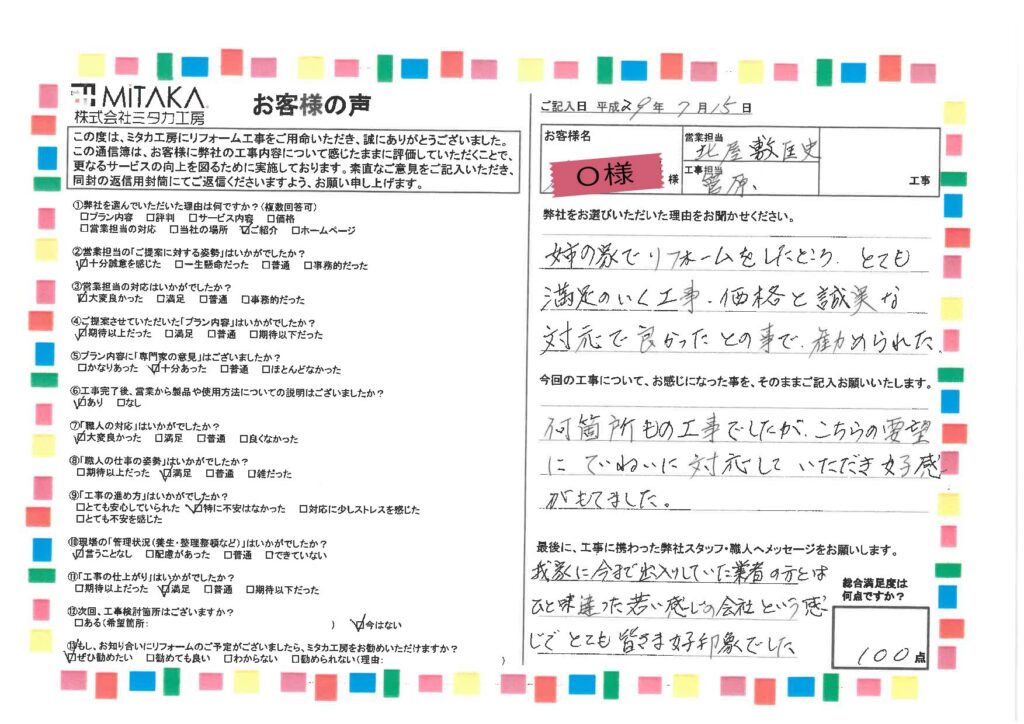 MITAKA
株式会社ミタカ工房
お客様の声
この度は、ミタカ工房にリフォーム工事をご用命いただき、誠にありがとうございました。
この通信簿は、お客様に弊社の工事内容について感じたままに評価していただくことで、
更なるサービスの向上を図るために実施しております。素直なご意見をご記入いただき、
同封の返信用封筒にてご返信くださいますよう、お願い申し上げます。
①弊社を選んでいただいた理由は何ですか?(複数回答可)
□プラン内容 □評判 □サービス内容 □価格
□営業担当の対応 □当社の場所 ☑ご紹介 □ホームページ
②営業担当の「ご提案に対する姿勢」はいかがでしたか?
☑十分誠意を感じた □一生懸命だった □普通 □事務的だった
③営業担当の対応はいかがでしたか?
☑大変良かった □満足 □普通 □事務的だった
④ご提案させていただいた「プラン内容」はいかがでしたか?
☑期待以上だった □満足 □普通 □期待以下だった
⑤プラン内容に「専門家の意見」はございましたか?
□かなりあった ☑十分あった □普通 □ほとんどなかった
⑥工事完了後、営業から製品や使用方法についての説明はございましたか?
☑あり □なし
⑦「職人の対応」はいかがでしたか?
☑大変良かった □満足 □普通 □良くなかった
⑧「職人の仕事の姿勢」はいかがでしたか?
□期待以上だった ☑満足 □普通 □雑だった
⑨「工事の進め方」はいかがでしたか?
□とても安心していられた ☑特に不安はなかった □対応に少しストレスを感じた
□とても不安を感じた
⑩現場の「管理状況(養生・整理整頓など)」はいかがでしたか?
☑言うことなし □配慮があった □普通 □できていない
⑪「工事の仕上がり」はいかがでしたか?
□期待以上だった ☑満足 □普通 □期待以下だった
⑫次回、工事検討箇所はございますか?
□ある(希望箇所: ) ☑今はない
⑬もし、お知り合いにリフォームのご予定がございましたら、ミタカ工房をお勧めいただけますか?
☑ぜひ勧めたい □勧めても良い □わからない □勧められない(理由: )
ご記入日 平成29年7月15日
お客様名
O様 様
営業担当 北屋敷匡史
工事担当 菅原、
工事
弊社をお選びいただいた理由をお聞かせください。
姉の家でリフォームをしたところ、とても
満足のいく工事、価格と誠実な
対応で良かったとの事で、勧められた。
今回の工事について、お感じになった事を、そのままご記入お願いいたします。
何箇所もの工事でしたが、こちらの要望
にていねいに対応していただき好感
がもてました。
最後に、工事に携わった弊社スタッフ・職人へメッセージをお願いします。
我家に今まで出入りしていた業者の方とは
ひと味違った若い感じの会社という感
じでとても皆さま好印象でした
総合満足度は
何点ですか?
100点